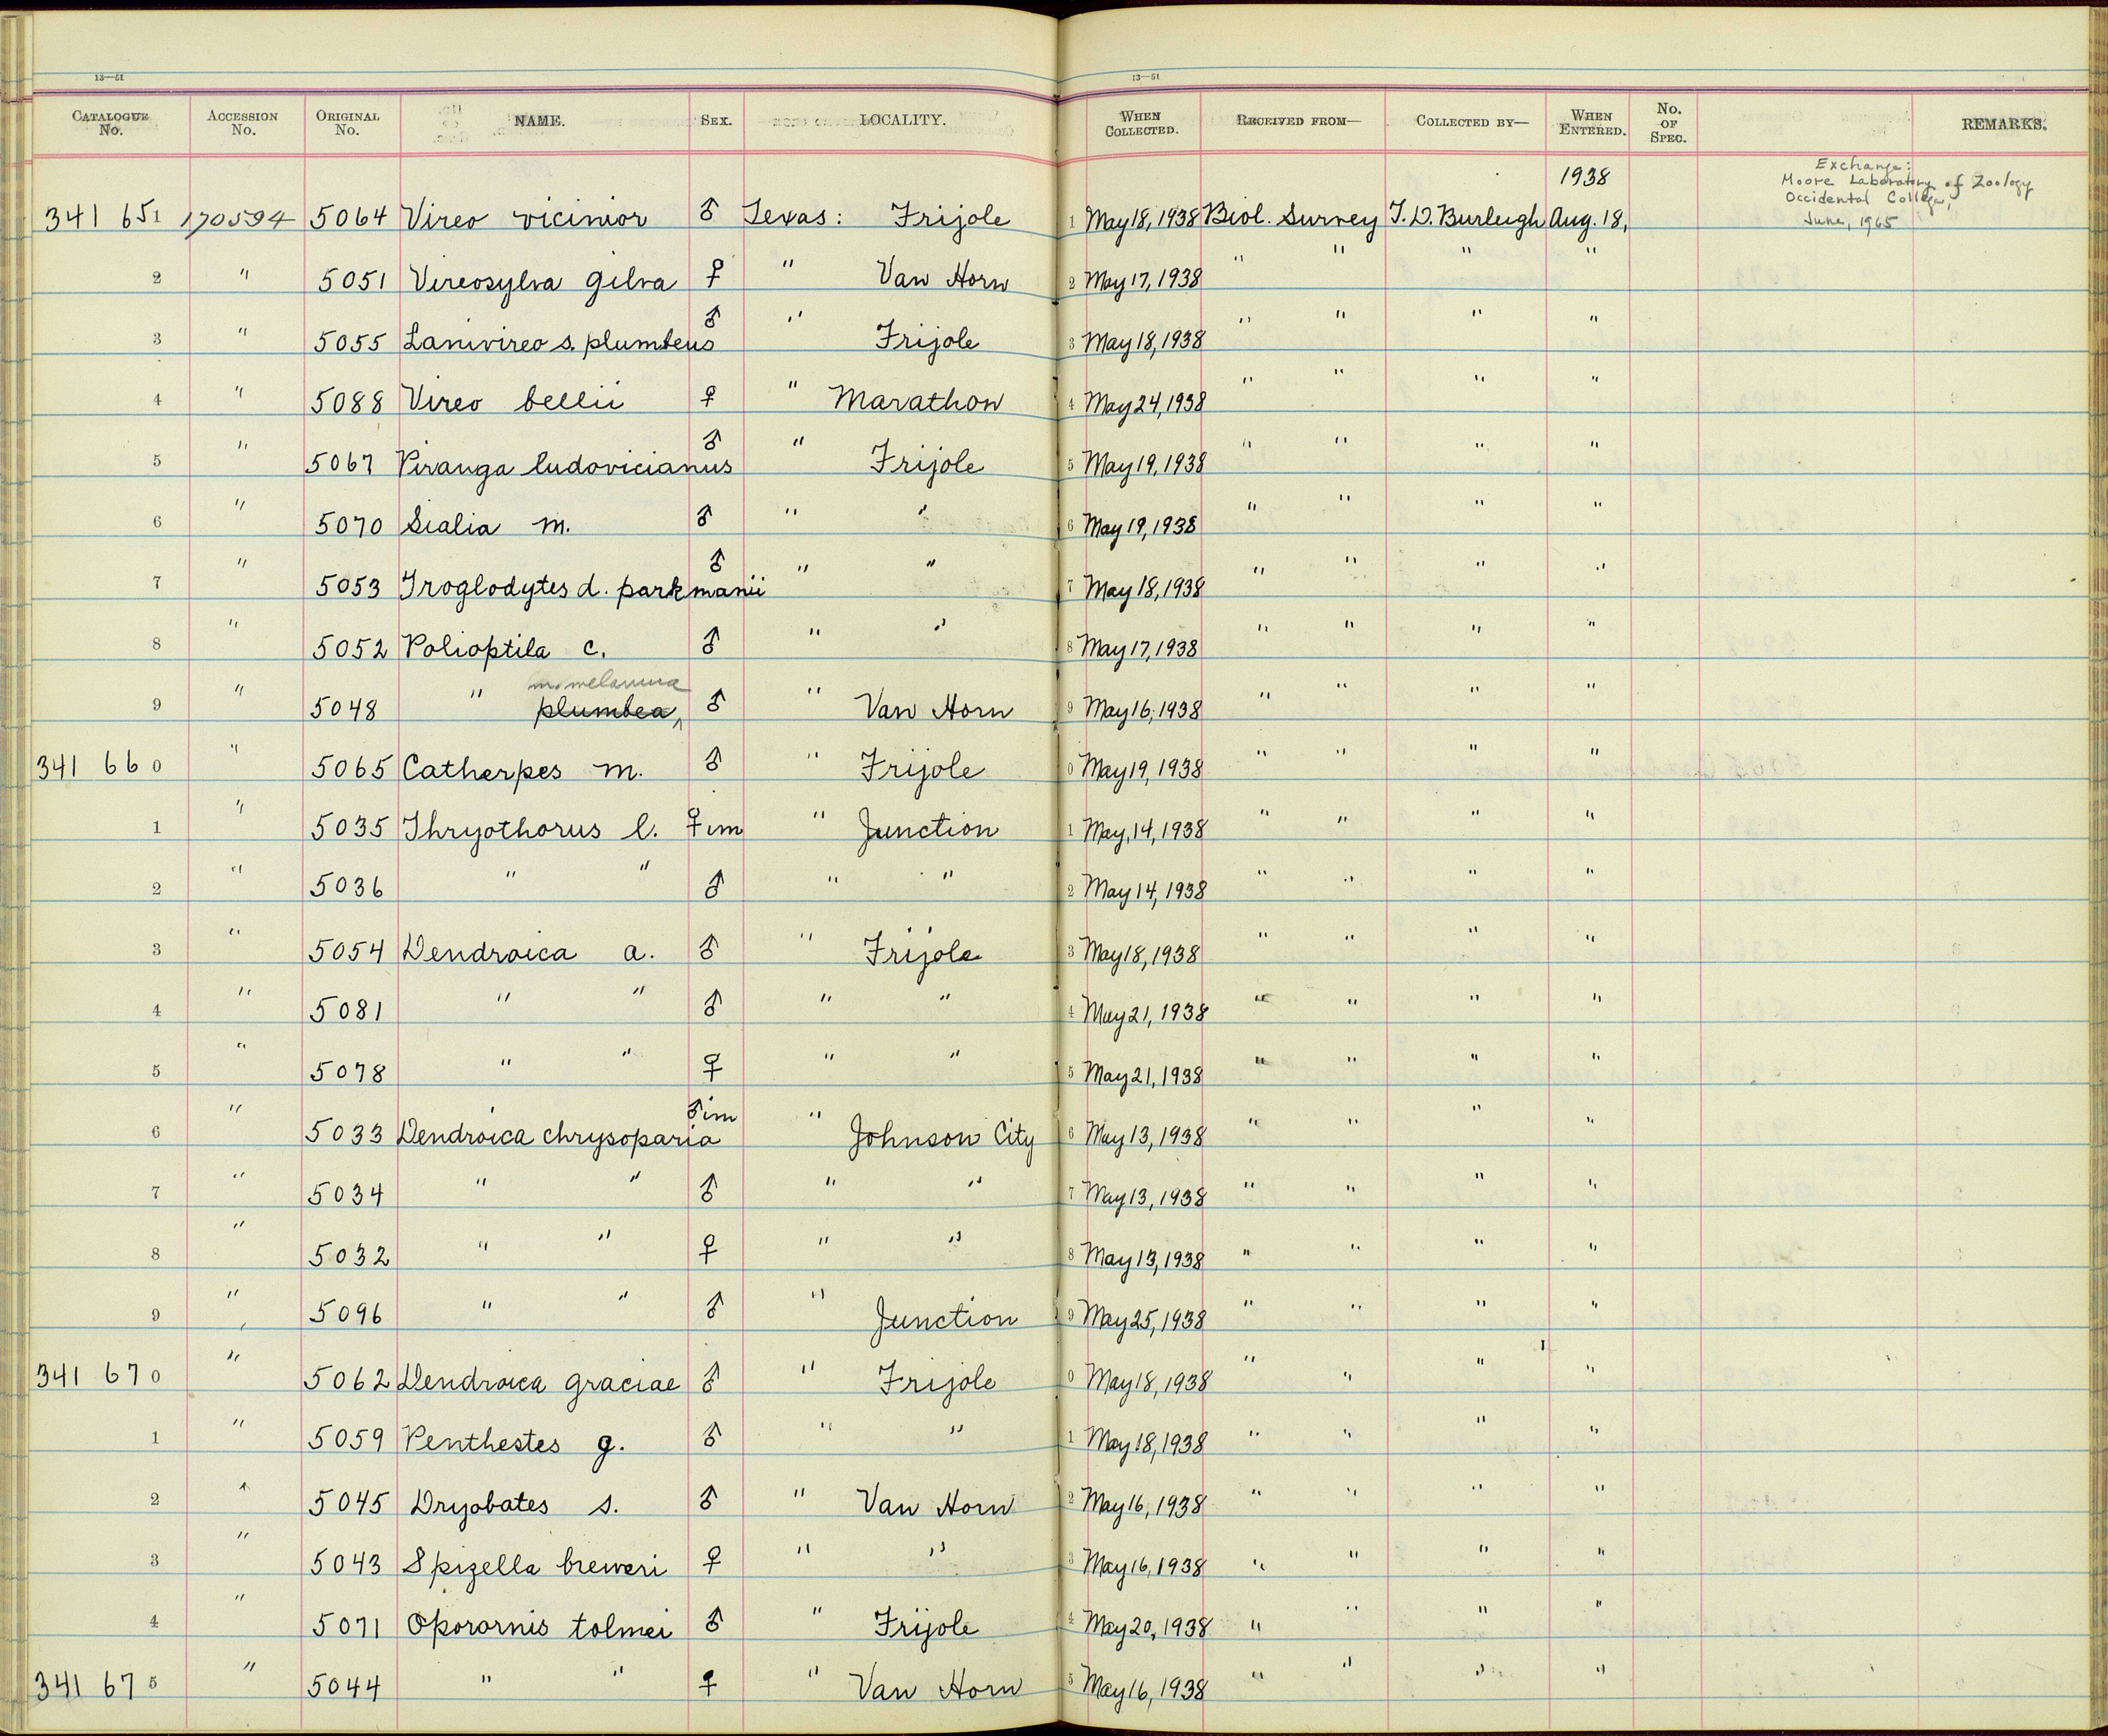 13—51 13—51
CATALOGUE No. ACCESSION No. ORIGINAL No. NAME. SEX. LOCALITY. WHEN COLLECTED. RECEIVED FROM— COLLECTED BY— WHEN ENTERED. No. OF SPEC. REMARKS.
1938 Exchange:
Moore Laboratory of Zoology
Occidental College,
June, 1965
341 651 170594 5064 Vireo vicinior ♂ Texas: Frijole 1 May 18, 1938 Biol. Survey T. D. Burleigh Aug. 18,
2 " 5051 Vireosylva gilva ♀ " Van Horn 2 May 17, 1938 " " " "
3 " 5055 Lanivireo s. plumbeus ♂ " Frijole 3 May 18, 1938 " " " "
4 " 5088 Vireo bellii ♀ " Marathon 4 May 24, 1938 " " " "
5 " 5067 Piranga ludovicianus ♂ " Frijole 5 May 19, 1938 " " " "
6 " 5070 Sialia m. ♂ " " 6 May 19, 1938 " " " "
7 " 5053 Troglodytes d. parkmanii ♂ " " 7 May 18, 1938 " " " "
8 " 5052 Polioptila c. ♂ " " 8 May 17, 1938 " " " "
m. melanura
9 " 5048 " plumbea, ♂ " Van Horn 9 May 16, 1938 " " " "
341 660 " 5065 Catherpes m. ♂ " Frijole 0 May 19, 1938 " " " "
1 " 5035 Thryothorus l. ♀ im " Junction 1 May, 14, 1938 " " " "
2 " 5036 " " ♂ " " 2 May 14, 1938 " " " "
3 " 5054 Dendroica a. ♂ " Frijole 3 May 18, 1938 " " " "
4 " 5081 " " ♂ " " 4 May 21, 1938 " " " "
5 " 5078 " " ♀ " " 5 May 21, 1938 " " " "
6 " 5033 Dendroica chrysoparia ♂ im " Johnson City 6 May 13, 1938 " " " "
7 " 5034 " " ♂ " " 7 May 13, 1938 " " " "
8 " 5032 " " ♀ " " 8 May 13, 1938 " " " "
9 " 5096 " " ♂ " Junction 9 May 25, 1938 " " " "
341 670 " 5062 Dendroica graciae ♂ " Frijole 0 May 18, 1938 " " " "
1 " 5059 Penthestes g. ♂ " " 1 May 18, 1938 " " " "
2 " 5045 Dryobates s. ♂ " Van Horn 2 May 16, 1938 " " " "
3 " 5043 Spizella breweri ♀ " " 3 May 16, 1938 " " " "
4 " 5071 Oporornis tolmei ♂ " Frijole 4 May 20, 1938 " " " "
341 675 " 5044 " " ♀ " Van Horn 5 May 16, 1938 " " " "